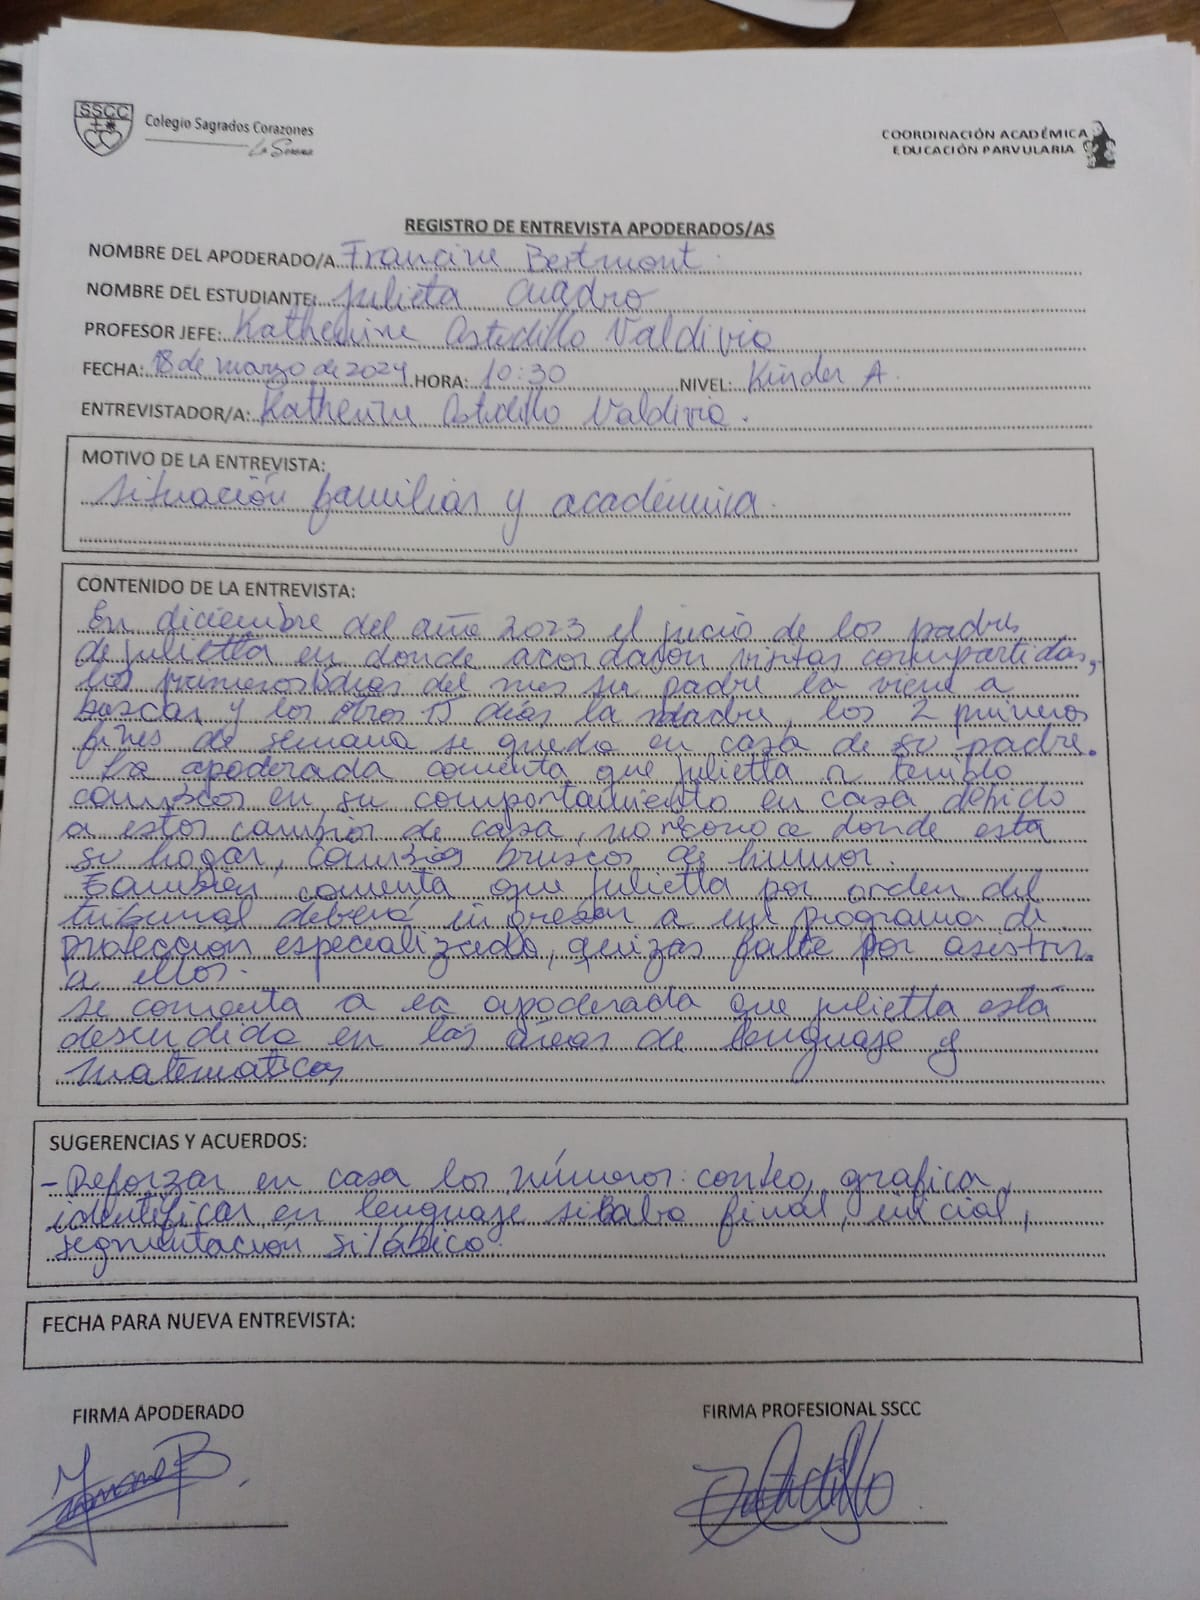 SSCC
Colegio Sagrados Corazones
La Serena
COORDINACIÓN ACADÉMICA
EDUCACIÓN PARVULARIA
REGISTRO DE ENTREVISTA APODERADOS/AS
NOMBRE DEL APODERADO/A Francine Bertmont.
NOMBRE DEL ESTUDIANTE: Julieta Cuadro
PROFESOR JEFE: Katherine Astudillo Valdivia
FECHA: 18 de marzo de 2024 HORA: 10:30 NIVEL: Kinder A.
ENTREVISTADOR/A: Katherine Astudillo Valdivia.
MOTIVO DE LA ENTREVISTA:
Situación familiar y académica.
CONTENIDO DE LA ENTREVISTA:
En diciembre del año 2023 el juicio de los padres
de julietta en donde acordaron visitas compartidas,
los primeros días del mes su padre la viene a
buscar y los otros 15 días la madre, los 2 primeros
fines de semana se queda en casa de su padre.
La apoderada comenta que julietta a tenido
cambios en su comportamiento en casa debido
a estos cambios de casa, no reconoce donde esta
su hogar, cambios bruscos de humor.
También comenta que julietta por orden del
tribunal deberá ingresar a un programa de
protección especializado, quizas falte por asistir
a ellos.
se comenta a la apoderada que julietta está
descendido en las áreas de lenguaje y
matematicas
SUGERENCIAS Y ACUERDOS:
- Reforzar en casa los números: conteo, grafica,
identificar en lenguaje silaba final, inicial,
segmentación silábica.
FECHA PARA NUEVA ENTREVISTA:
FIRMA APODERADO FIRMA PROFESIONAL SSCC